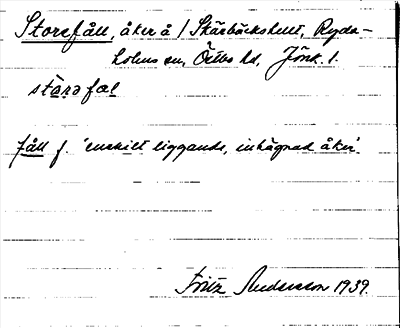 Storefåll, åker å 1 Skärbäckshult, Ryda-
holms sn, Östbo hd, Jönk. l.
störə fal
fåll f. 'enskilt liggande, inhägnad åker'.
Fritz Andersson 1939.